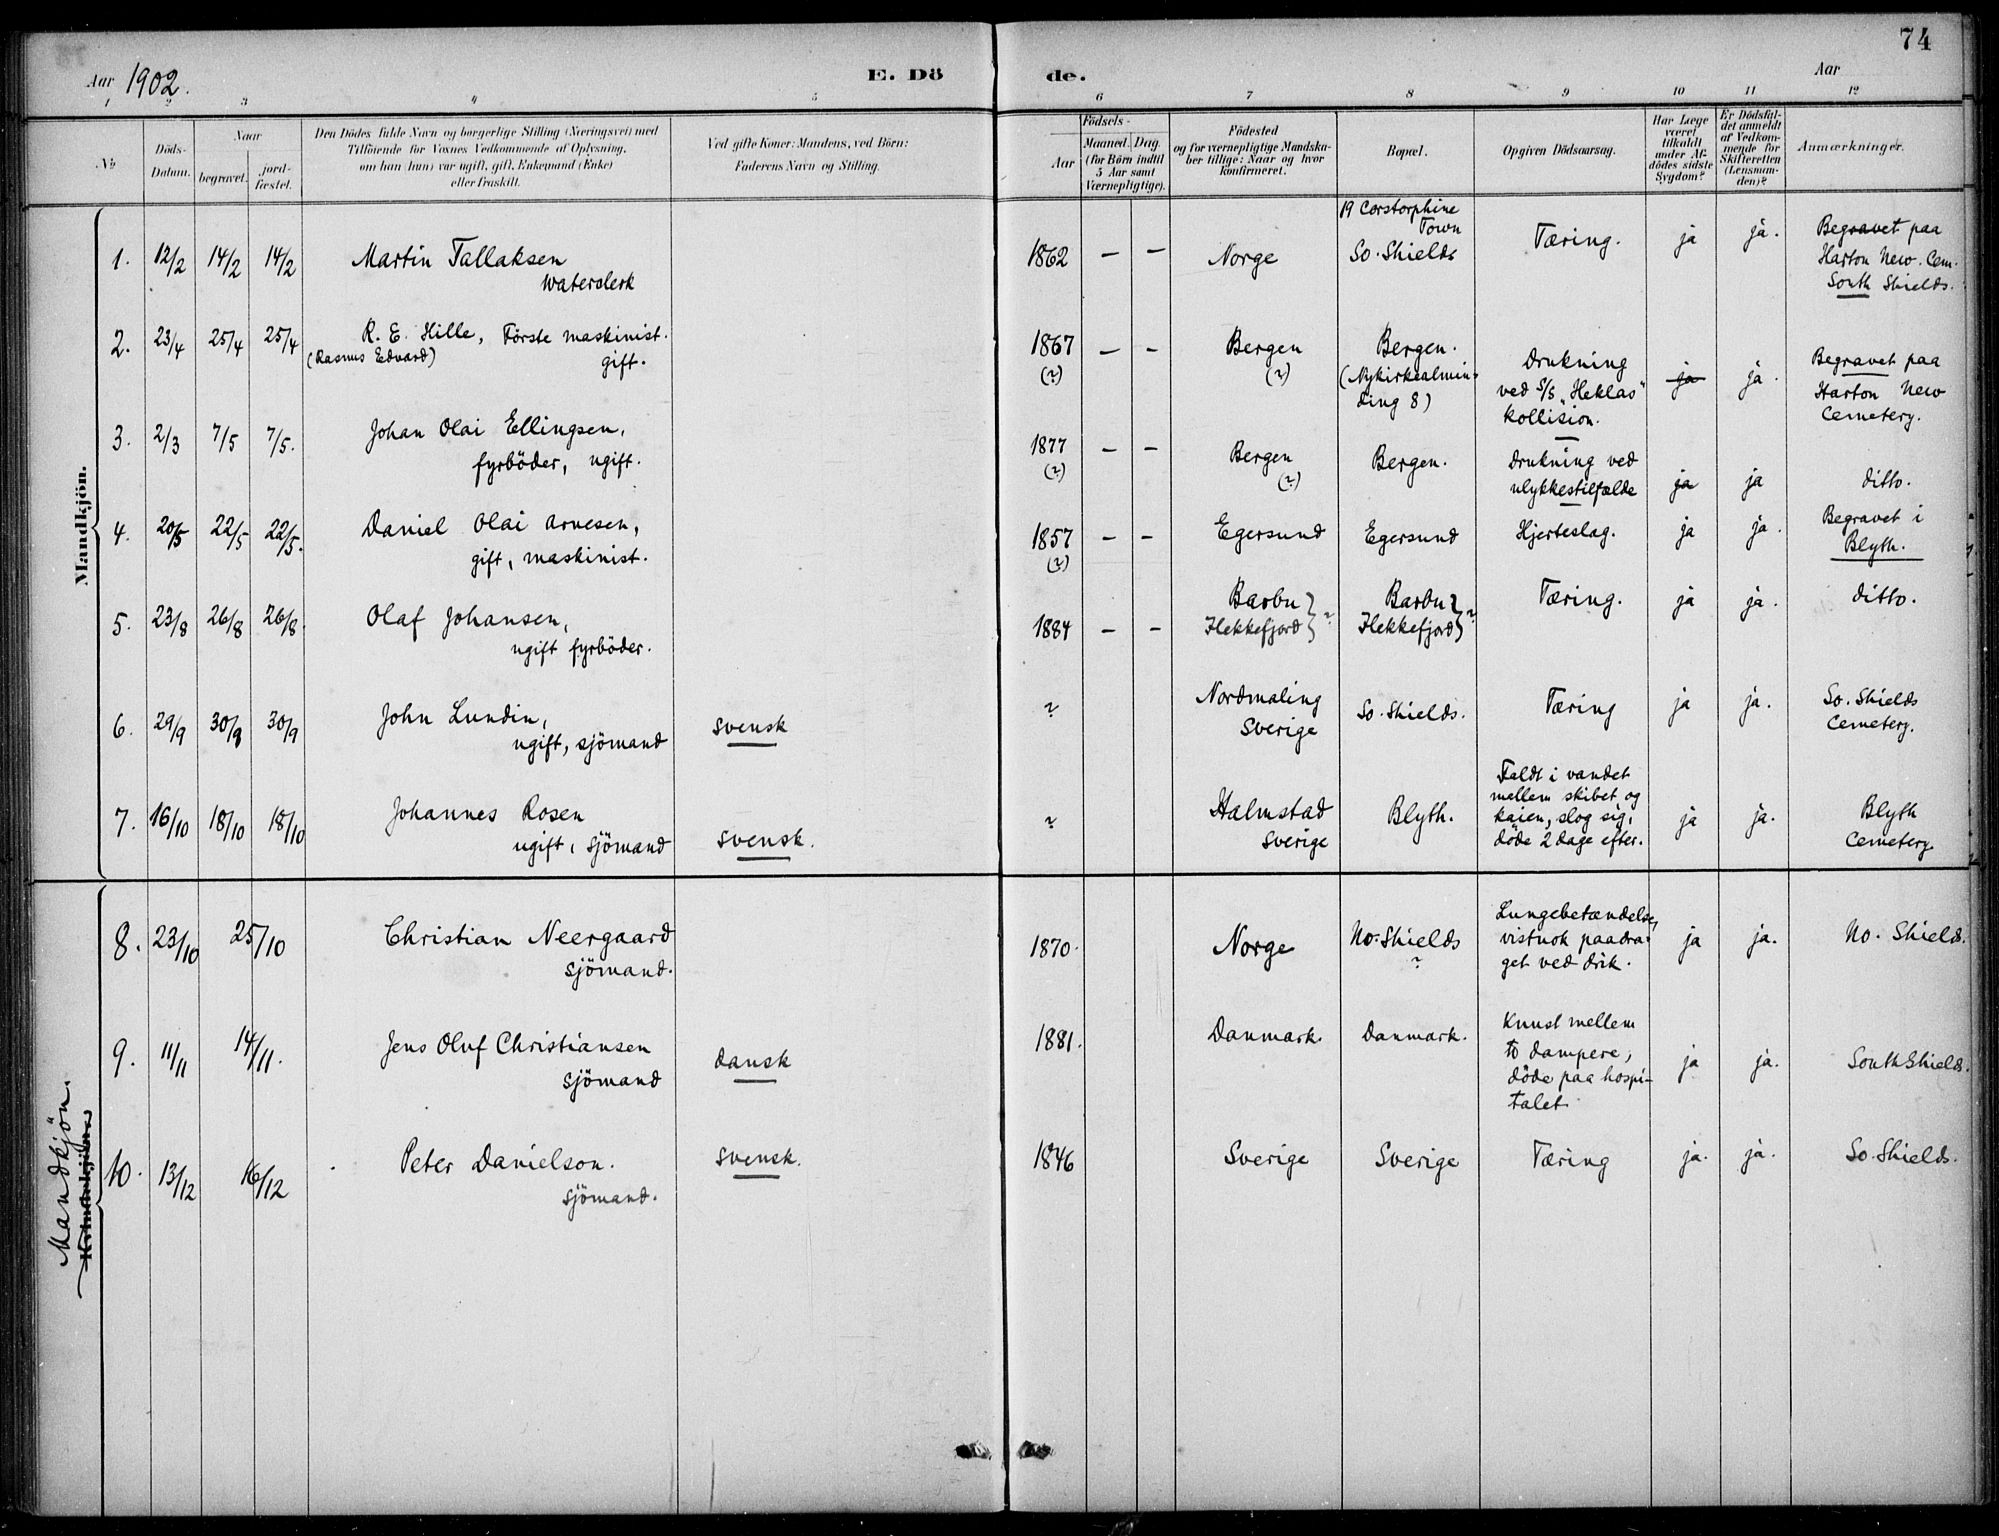 74
Aar 1902.
E. Dö de.
Aar
1 2 3 4 5 6 7 8 9 10 11 12
No
Döds-
Datum.
Naar
begravet.
jord-
fæstet.
Den Dödes fulde Navn og borgerlige Stilling (Næringsvei) med
Tilföiende for Voxnes Vedkommende af Oplysning,
om han (hun) var ugift, gift, Enkemand (Enke)
eller fraskilt.
Ved gifte Koner: Mandens, ved Börn:
Faderens Navn og Stilling.
Födsels-
Aar
Maaned. Dag.
(for Börn indtil
5 Aar samt
Værnepligtige).
Födested
og for værnepligtige Mandska-
ber tillige: Naar og hvor
konfirmeret.
Bopæl.
Opgiven Dödsaarsag.
Har Læge
været
tilkaldt
under Af-
dödes sidste
Sygdom?
Er Dödsfal-
det anmeldt
af Vedkom-
mende for
Skifteretten
(Lensman-
den)?
Anmærkninger.
Mandkjön.
1. 12/2 14/2 14/2 Martin Tallaksen
waterclerk
1862 — — Norge
19 Corstorphine
Town
So. Shields
Tæring. ja ja.
Begravet paa
Harton New. Cem.
South Shields.
2. 23/4 25/4 25/4 R. E. Hille, Förste maskinist.
(Rasmus Edvard) gift.
1867 — —
(?)
Bergen
(?)
Bergen.
(Nykirkealmin-
ding 8)
Drukning
ved S/S "Heklas"
kollision.
ja ja.
Begravet paa
Harton New
Cemetery.
3. 2/3 7/5 7/5. Johan Olai Ellingsen,
fyrböder, ugift.
1877 — —
(?)
Bergen
(?)
Bergen.
Drukning ved
ulykkestilfælde
ja ja ditto.
4. 20/5 22/5 22/5. Daniel Olai Arnesen,
gift, maskinist.
1857 — —
(?)
Egersund Egersund Hjerteslag. ja ja.
Begravet i
Blyth.
5. 23/8 26/8 26/8. Olaf Johansen,
ugift fyrböder.
1884 — —
Barbu
Flekkefjord } ?
Barbu
Flekkefjord } ?
Tæring. ja ja. ditto.
6. 29/9 30/9 30/9 John Lundin,
ugift, sjömand
svensk
?
Nordmaling
Sverige
So. Shields. Tæring ja ja.
So. Shields
Cemetery.
7. 16/10 18/10 18/10 Johannes Rosen
ugift, sjömand
svensk.
?
Halmstad
Sverige
Blyth.
Faldt i vandet
mellem skibet og
kaien, slog sig,
döde 2 dage efter.
ja ja.
Blyth
Cemetery
Mandkjön
Kvindekjön
8. 23/10 25/10 Christian Neergaard
sjömand.
1870. Norge
No. Shields
?
Lungebetændelse,
vistnok paadra-
get ved drik.
ja ja. No. Shields.
9. 11/11 14/11. Jens Oluf Christiansen
sjömand
dansk
1881. Danmark. Danmark.
Knust mellem
to dampere,
döde paa hospi-
talet
ja ja. South Shields.
10. 13/12 16/12 Peter Danielson.
sjömand.
svensk.
1846 Sverige Sverige Tæring ja. ja. So. Shields.